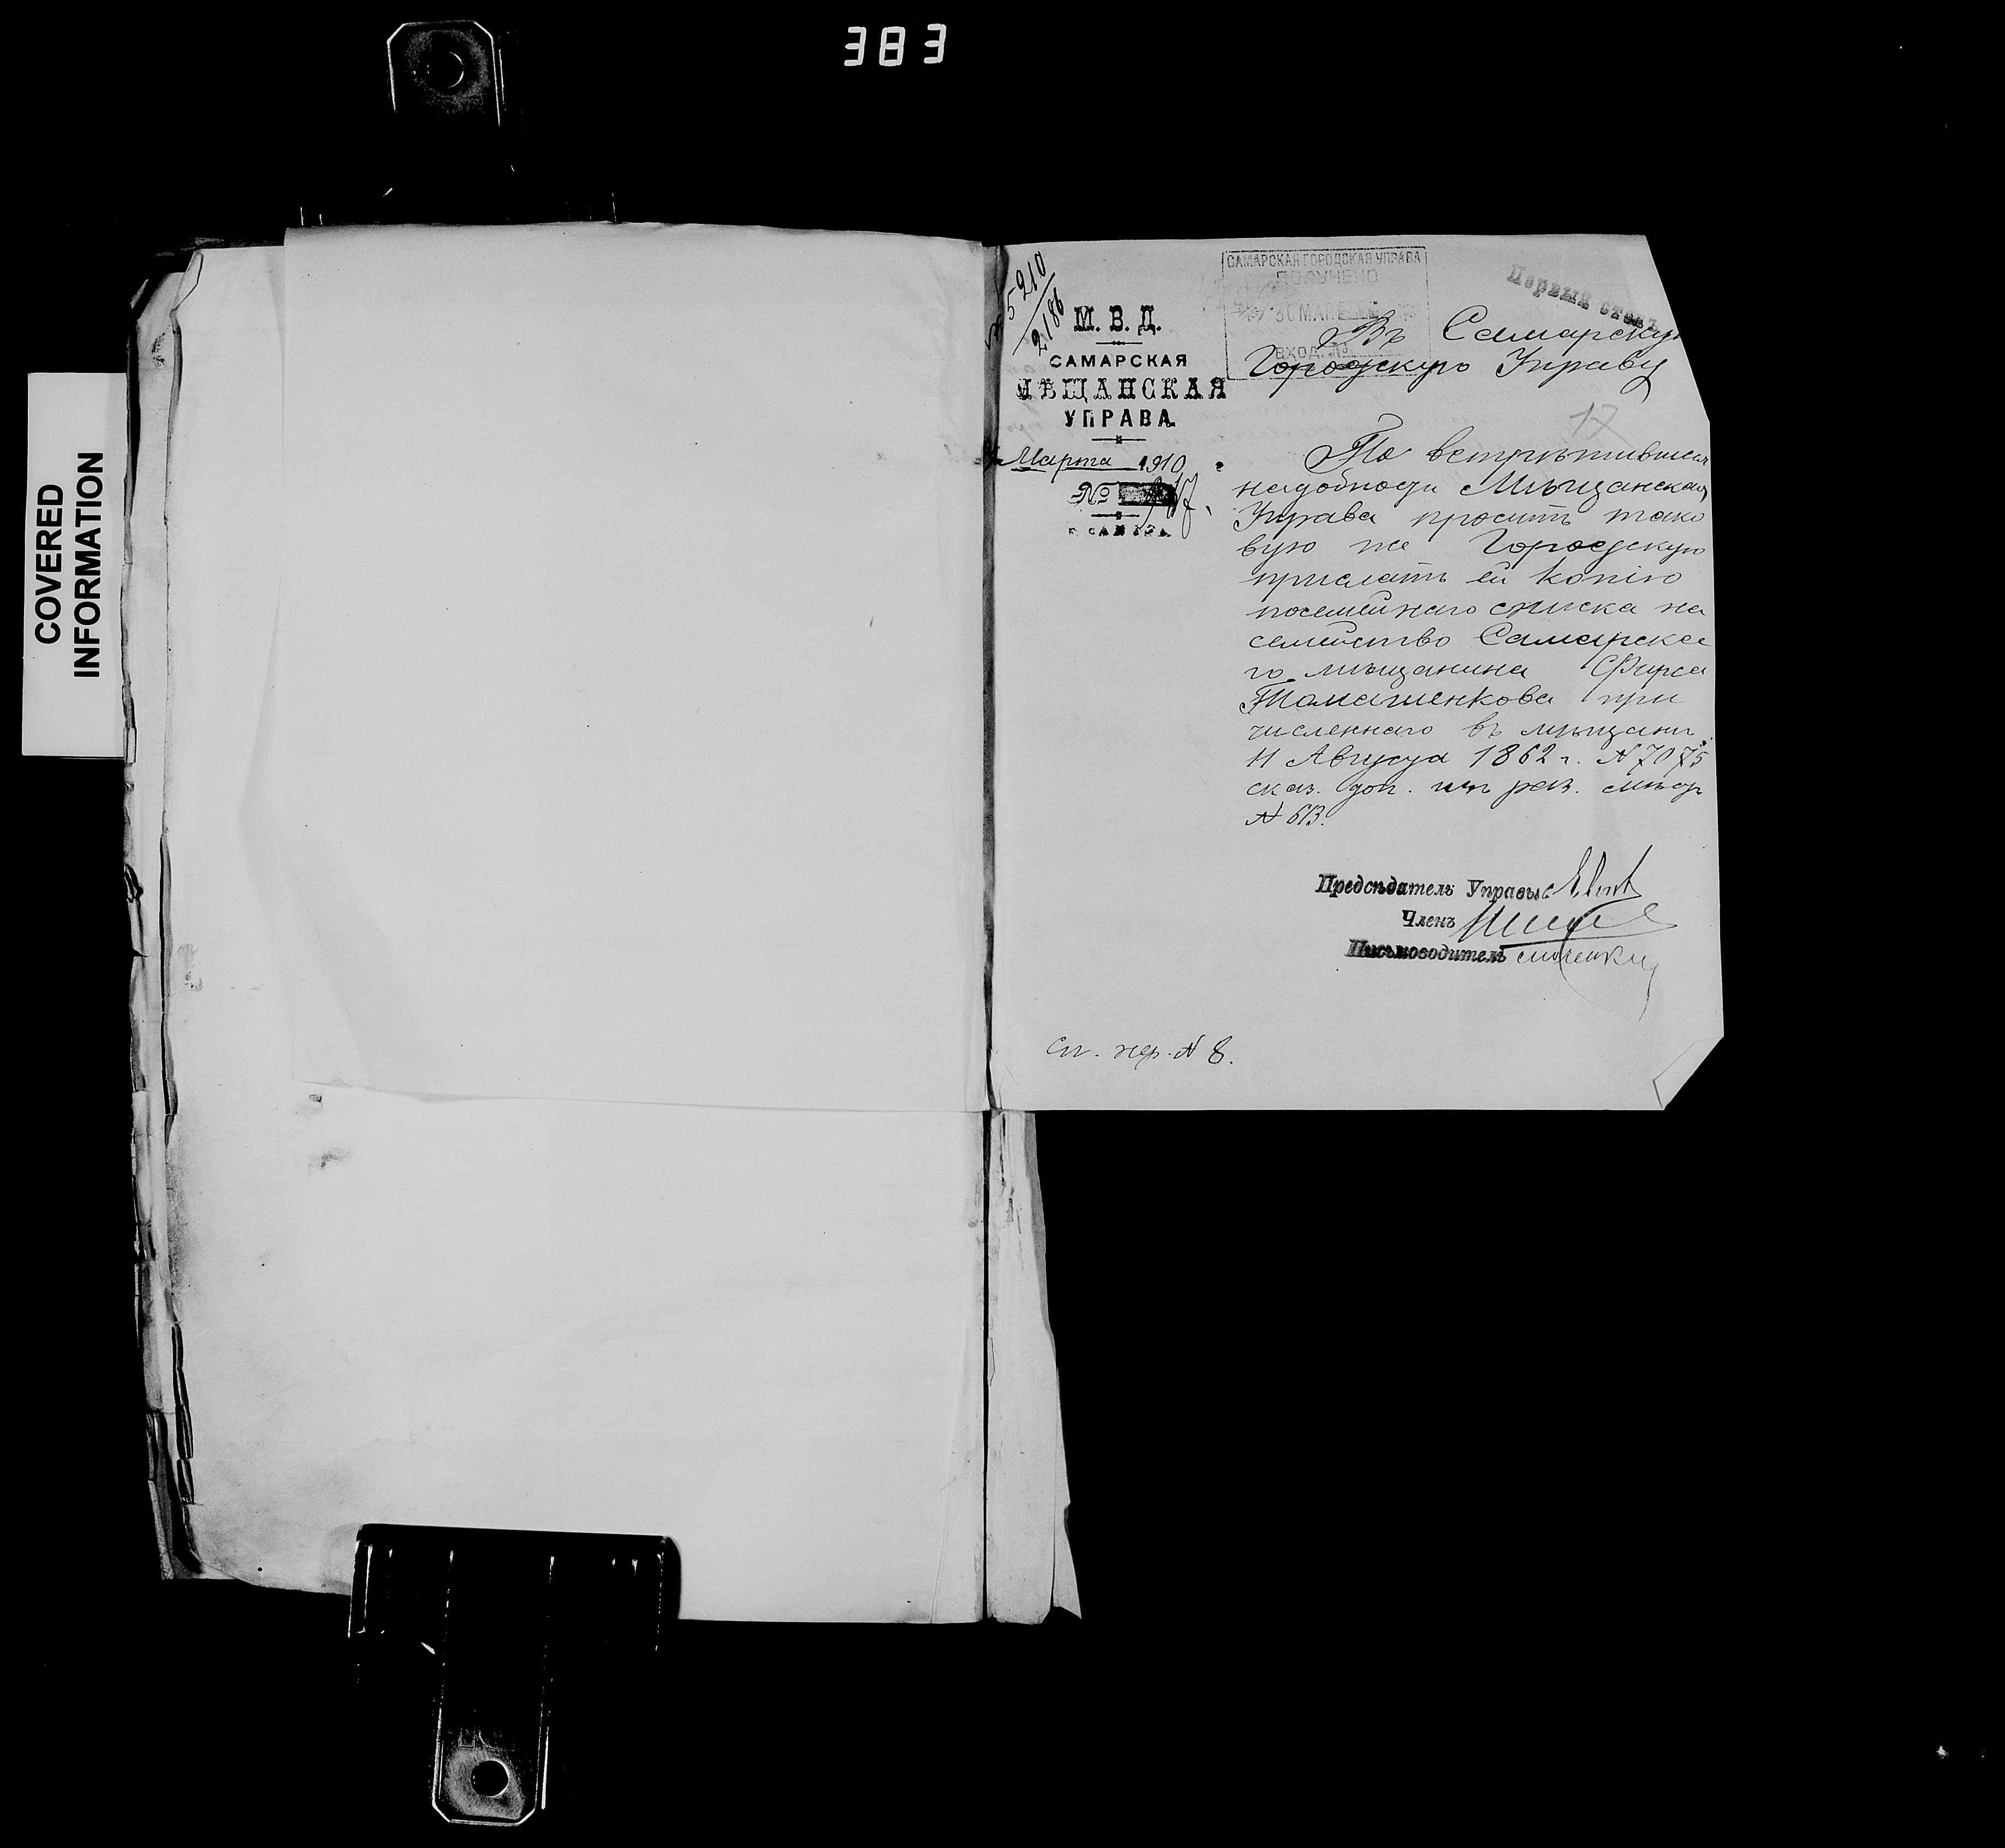 383
COVERED
INFORMATION
5210
2186
М. В. Д.
САМАРСКАЯ
МѢЩАНСКАЯ
УПРАВА.
Марта 1910
№
Г. САМАРА.
САМАРСКАЯ ГОРОДСКАЯ УПРАВА
ПОЛУЧЕНО
30 МАР
ВХОД. №
Первый столъ
Въ Самарскую
Городскую Управу
17
По встрѣтившейся
надобности Мѣщанская
Управа проситъ тако
вую же Городскую
прислать ей копію
посемейнаго списка на
семейство Самарска
го мѣщанина Фирса
Томашенкова при
численнаго въ мѣщане
11 Августа 1862 г. N 7075
сказ. доп. къ рев. мѣщ
N 613.
Предсѣдатель Управы
Членъ
Письмоводитель
Сп. чер. N 8.